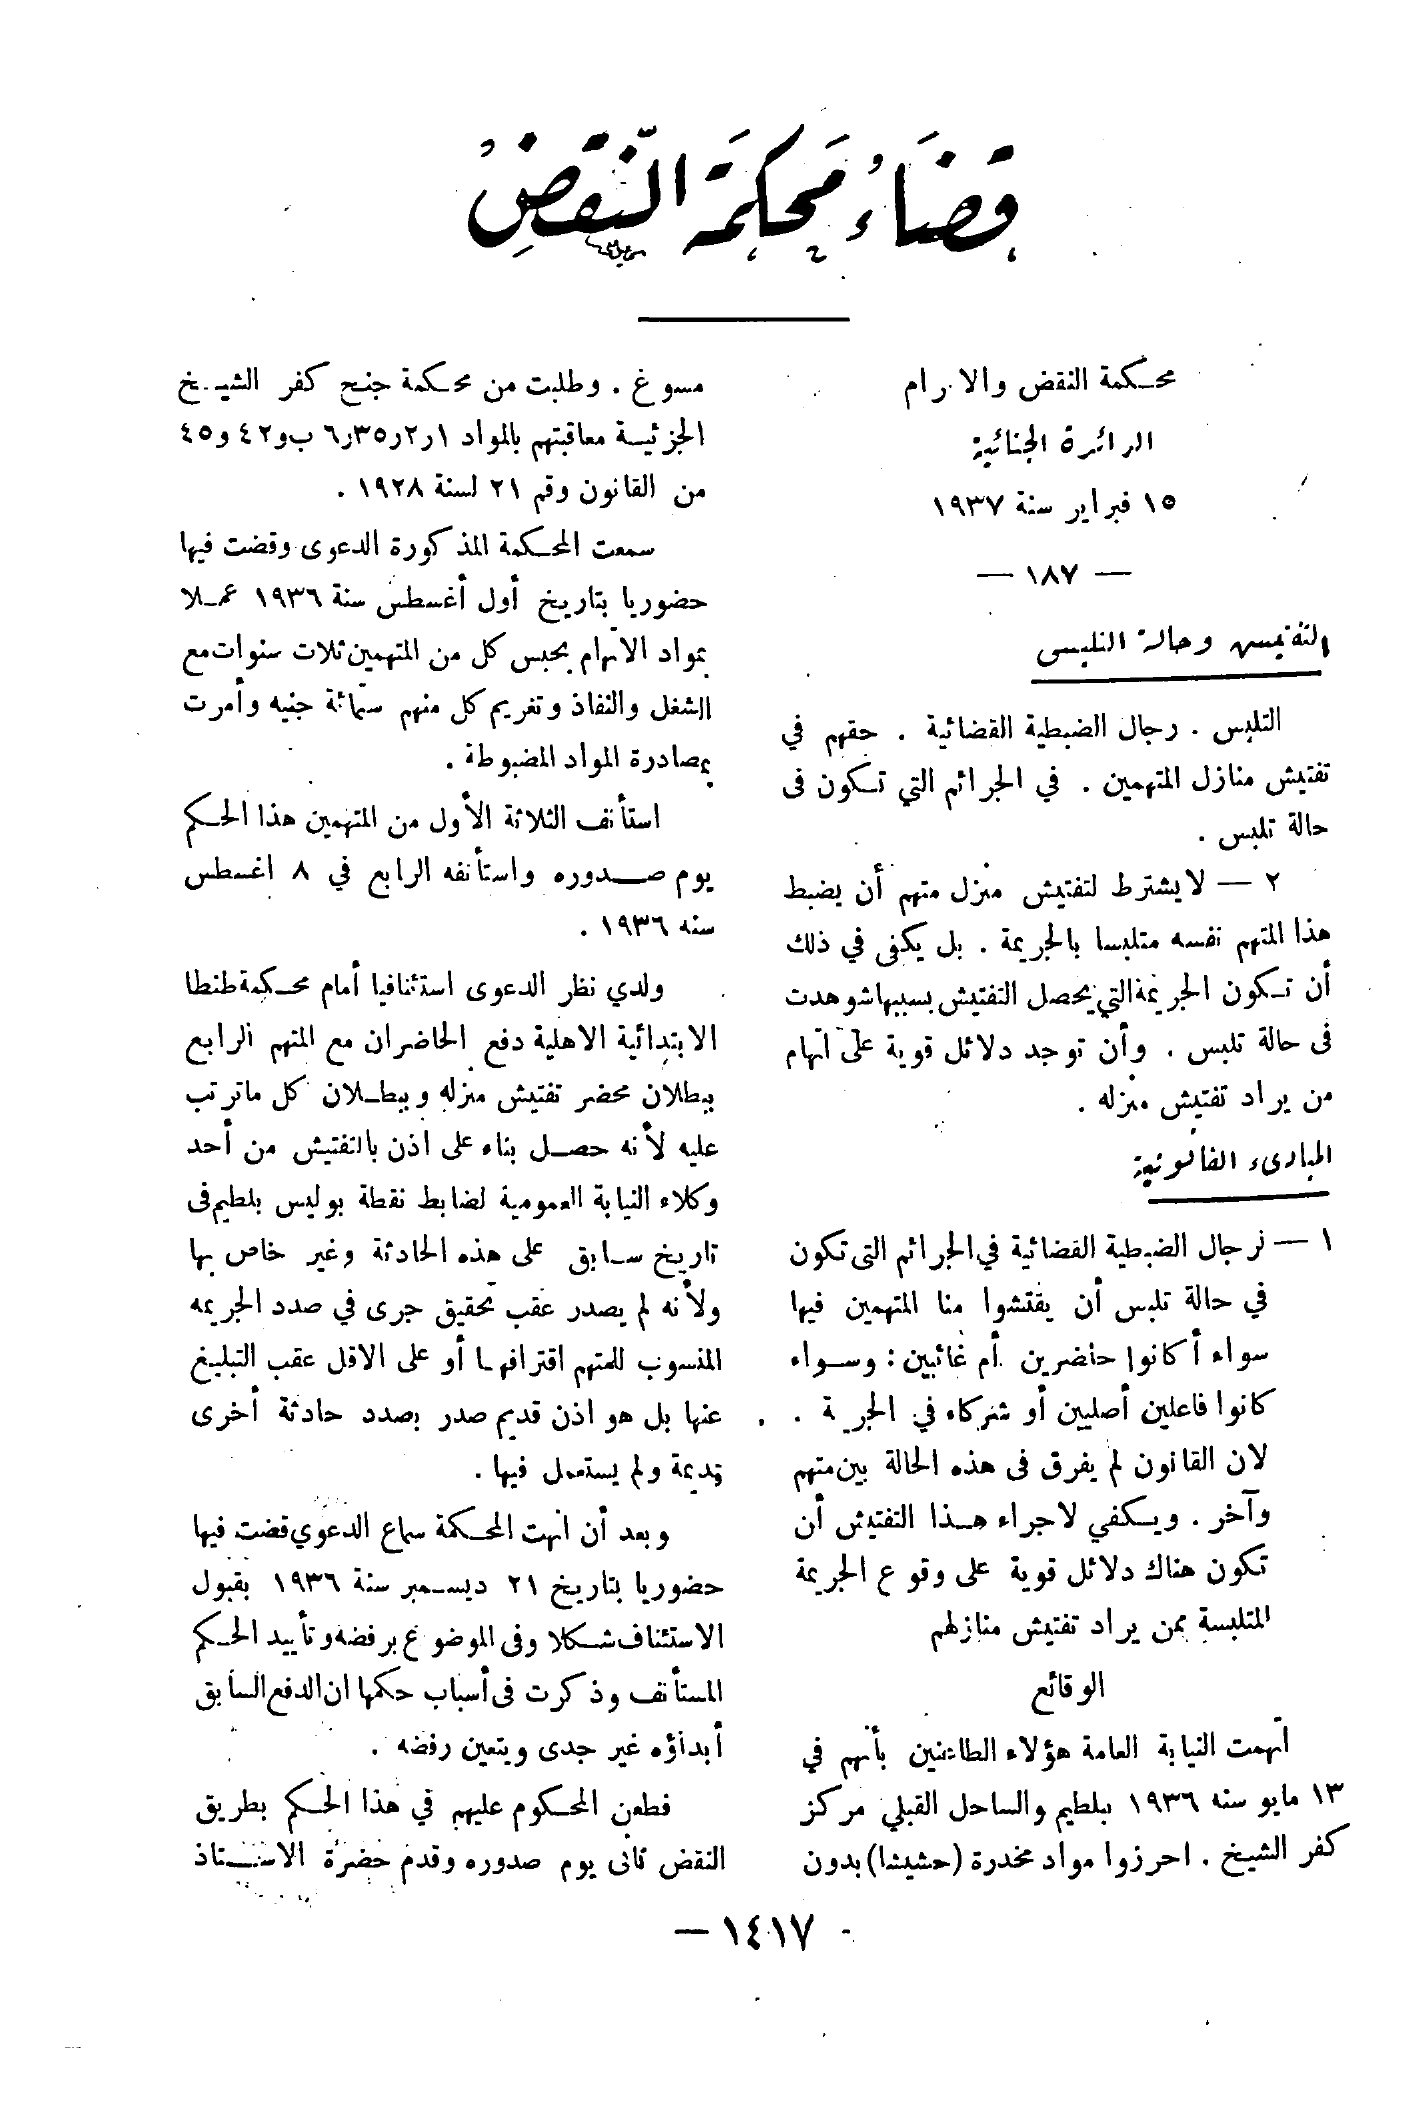 قضاء محكمة النقض
محكمة النقض والابرام
الدائرة الجنائية
١٥ فبراير سنة ١٩٣٧
— ١٨٧ —
التفتيش وحالة التلبس
التلبس . رجال الضبطية القضائية . حقهم في
تفتيش منازل المتهمين . في الجرائم التي تكون فى
حالة تلبس .
٢ — لا يشترط لتفتيش منزل متهم أن يضبط
هذا المتهم نفسه متلبسا بالجريمة . بل يكفى في ذلك
أن تكون الجريمة التي يحصل التفتيش بسببها شوهدت
فى حالة تلبس . وأن توجد دلائل قوية على اتهام
من يراد تفتيش منزله .
المبادىء القانونية
١ — لرجال الضبطية القضائية في الجرائم التى تكون
في حالة تلبس أن يفتشوا منا المتهمين فيها
سواء أكانوا حاضرين أم غائبين : وسواء
كانوا فاعلين أصليين أو شركاء في الجريمة .
لان القانون لم يفرق فى هذه الحالة بين متهم
وآخر . ويكفي لاجراء هذا التفتيش أن
تكون هناك دلائل قوية على وقوع الجريمة
المتلبسة بمن يراد تفتيش منازلهم
الوقائع
اتهمت النيابة العامة هؤلاء الطاعنين بأنهم في
١٣ مايو سنه ١٩٣٦ ببلطيم والساحل القبلي مركز
كفر الشيخ . احرزوا مواد مخدرة (حشيشا) بدون
مسوغ . وطلبت من محكمة جنح كفر الشيخ
الجزئية معاقبتهم بالمواد ١ر٢ر٣٥ر٦ ب و٤٢ و٤٥
من القانون رقم ٢١ لسنة ١٩٢٨ .
سمعت المحكمة المذكورة الدعوى وقضت فيها
حضوريا بتاريخ أول أغسطس سنة ١٩٣٦ عملا
بمواد الاتهام بحبس كل من المتهمين ثلاث سنوات مع
الشغل والنفاذ وتغريم كل منهم ستمائة جنيه وأمرت
بمصادرة المواد المضبوطة .
استأنف الثلاثة الأول من المتهمين هذا الحكم
يوم صدوره واستأنفه الرابع في ٨ اغسطس
سنه ١٩٣٦ .
ولدي نظر الدعوى استئنافيا أمام محكمة طنطا
الابتدائية الاهلية دفع الحاضران مع المتهم الرابع
ببطلان محضر تفتيش منزله وببطلان كل ماترتب
عليه لأنه حصل بناء على اذن بالتفتيش من أحد
وكلاء النيابة العمومية لضابط نقطة بوليس بلطيم فى
تاريخ سابق على هذه الحادثة وغير خاص بها
ولأنه لم يصدر عقب تحقيق جرى في صدد الجريمه
المنسوب للمتهم اقترافها أو على الاقل عقب التبليغ
عنها بل هو اذن قديم صدر بصدد حادثة أخرى
قديمة ولم يستعمل فيها .
وبعد أن انهت المحكمة سماع الدعوي قضت فيها
حضوريا بتاريخ ٢١ ديسمبر سنة ١٩٣٦ بقبول
الاستئناف شكلا وفى الموضوع برفضه وتأييد الحكم
المستأنف وذكرت فى أسباب حكمها ان الدفع السابق
أبداؤه غير جدى ويتعين رفضه .
فطعن المحكوم عليهم في هذا الحكم بطريق
النقض ثانى يوم صدوره وقدم حضرة الاستاذ
— ١٤١٧ —